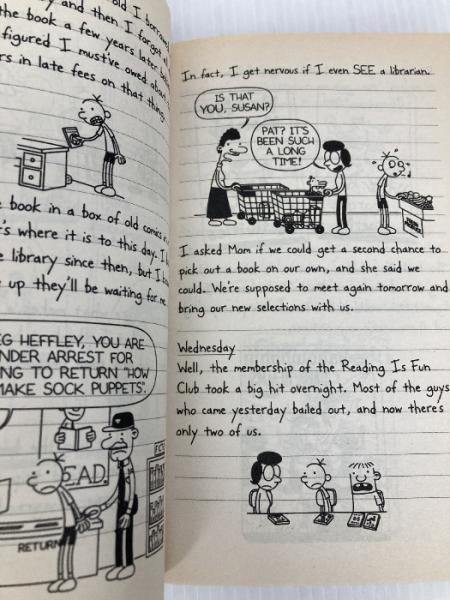 old I borrowed
and then I forgot all
the book a few years later
figured I must've owed about
in late fees on that thing.
book in a box of old comics
where it is to this day. I
library since then, but I
up they'll be waiting for me.
HEFFLEY, YOU ARE
UNDER ARREST FOR
TO RETURN "HOW
MAKE SOCK PUPPETS".
EAD
RETURN
In fact, I get nervous if I even SEE a librarian.
IS THAT
YOU, SUSAN?
PAT? IT'S
BEEN SUCH
A LONG
TIME!
I asked Mom if we could get a second chance to
pick out a book on our own, and she said we
could. We're supposed to meet again tomorrow and
bring our new selections with us.
Wednesday
Well, the membership of the Reading Is Fun
Club took a big hit overnight. Most of the guys
who came yesterday bailed out, and now there's
only two of us.